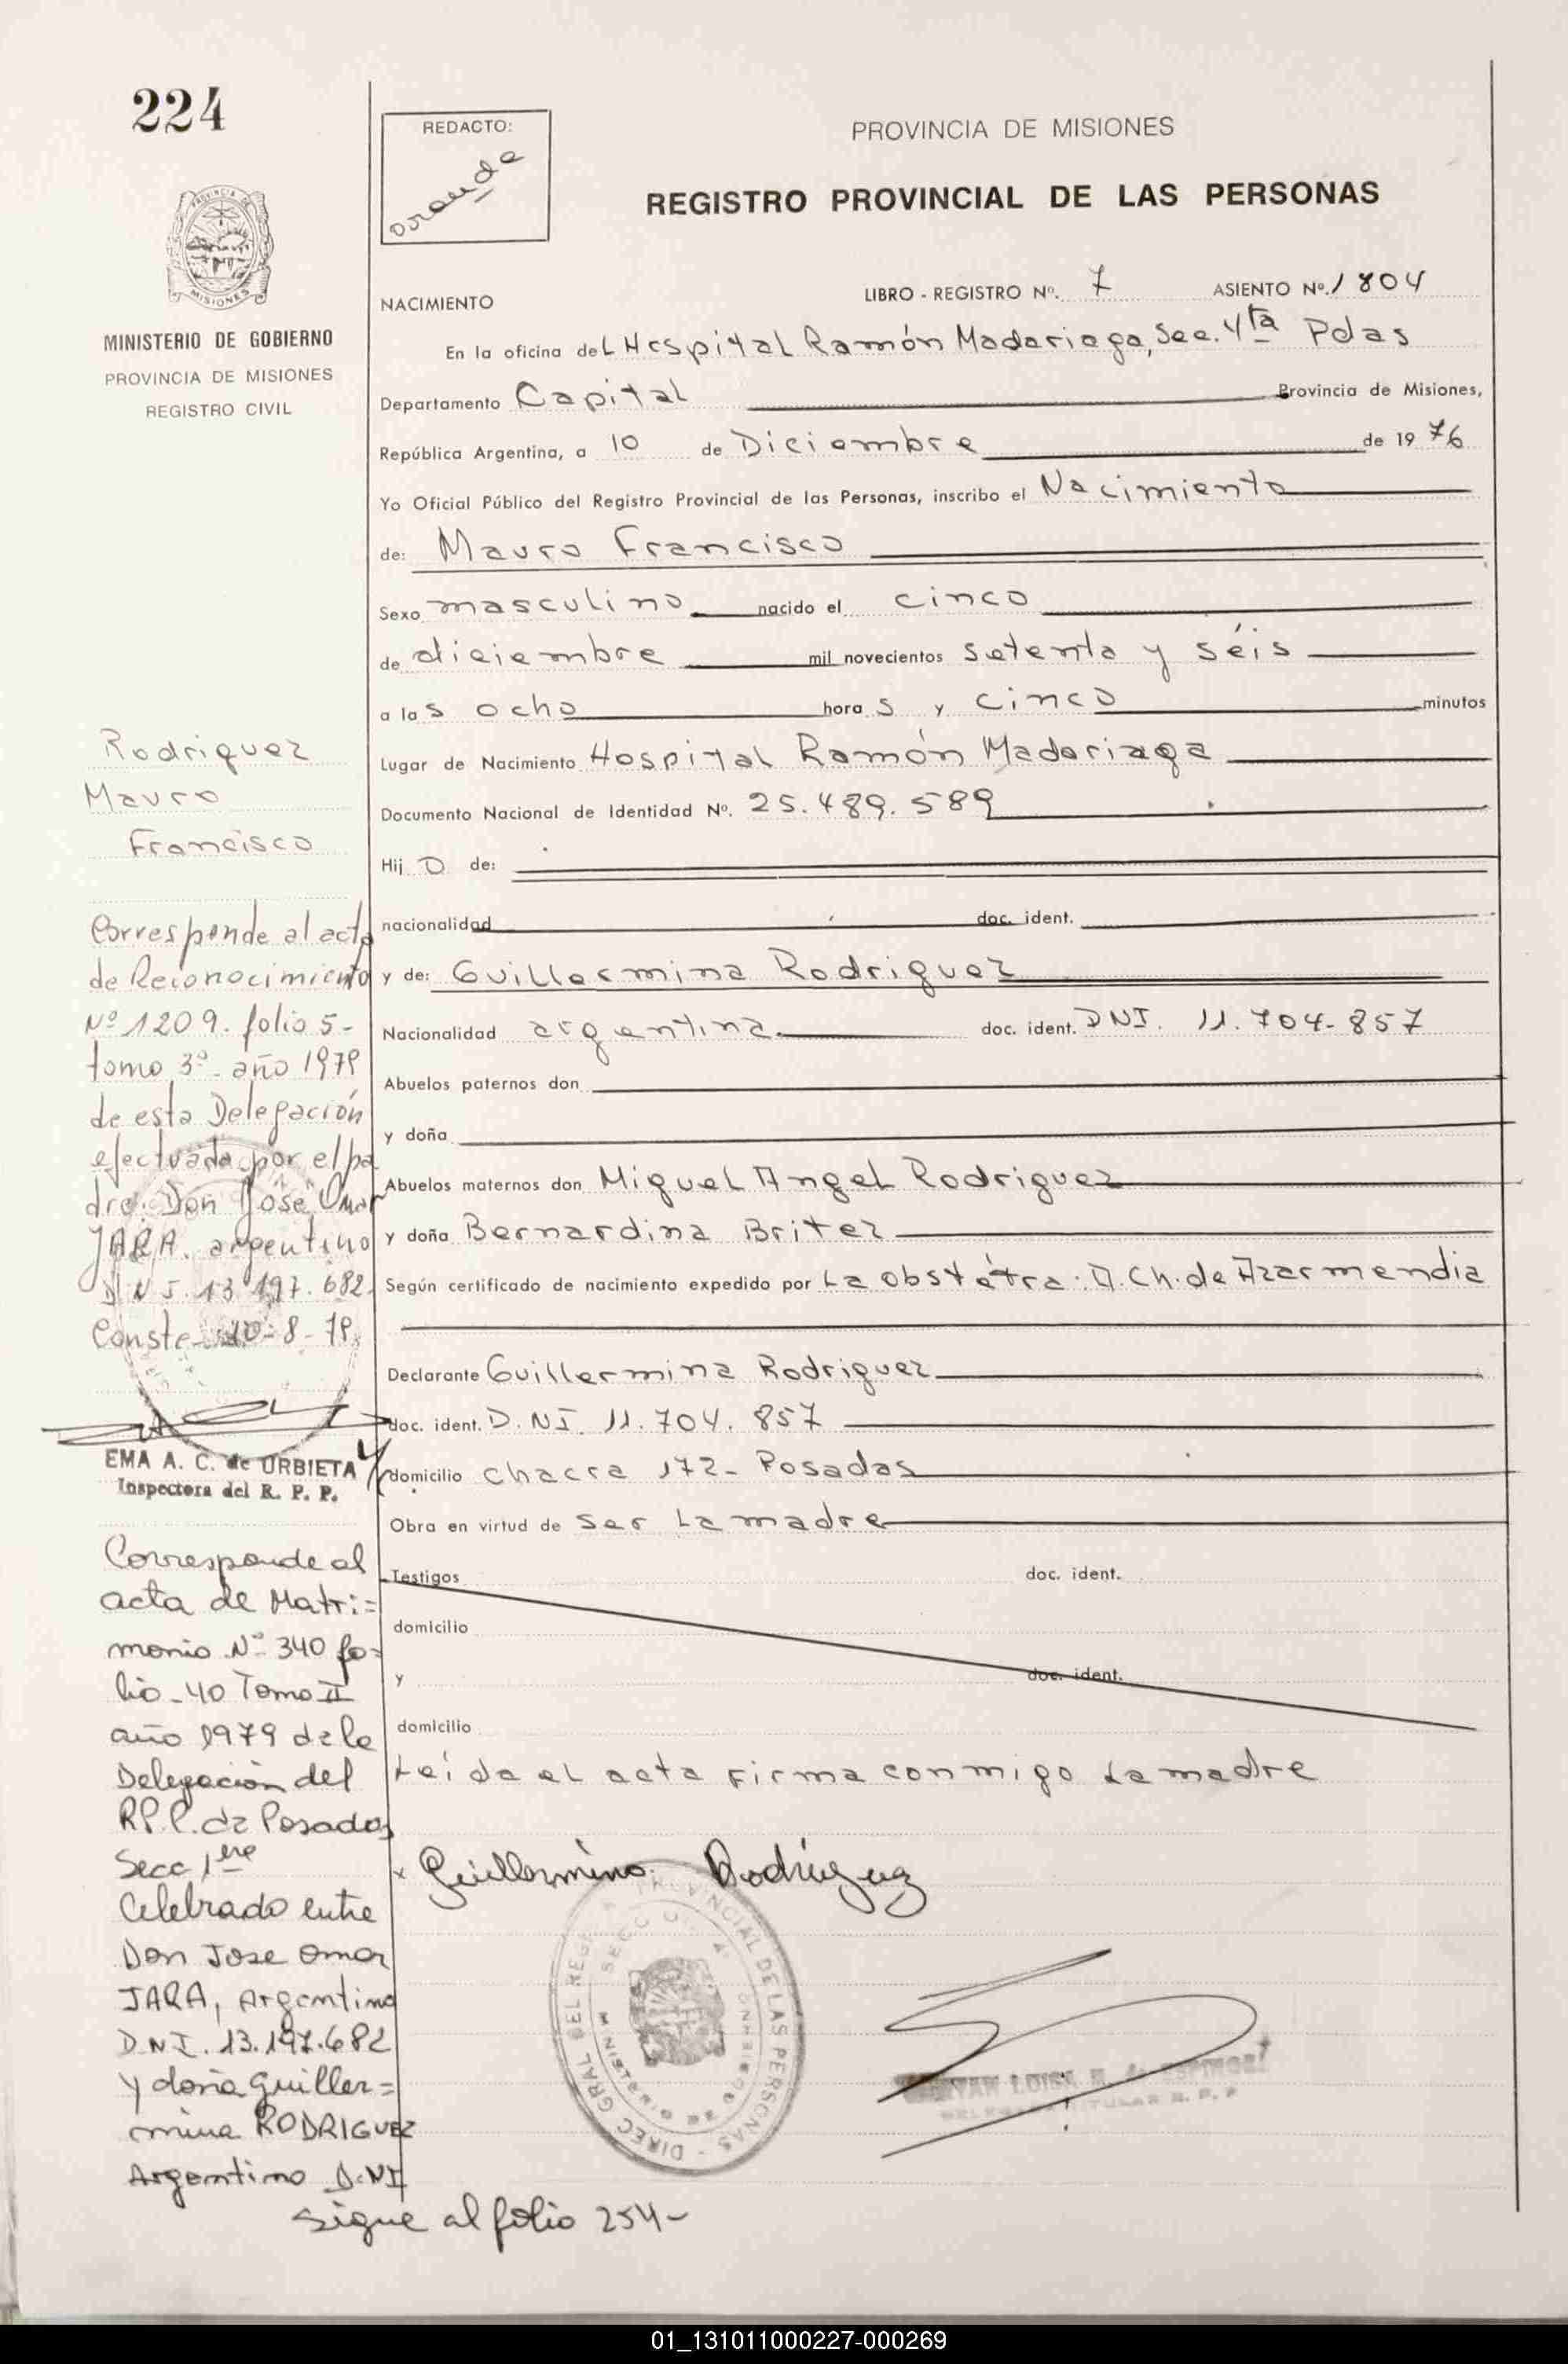 224
REDACTO:
PROVINCIA DE MISIONES
REGISTRO PROVINCIAL DE LAS PERSONAS
MISIONES
MINISTERIO DE GOBIERNO
PROVINCIA DE MISIONES
REGISTRO CIVIL
NACIMIENTO
LIBRO - REGISTRO Nº. 7 ASIENTO Nº. 1804
En la oficina del Hospital Ramón Madariaga, Sec. 4ta Pdas
Departamento Capital Provincia de Misiones,
República Argentina, a 10 de Diciembre de 1976
Yo Oficial Público del Registro Provincial de las Personas, inscribo el Nacimiento
de: Mauro Francisco
Sexo masculino nacido el cinco
de diciembre mil novecientos setenta y séis
a las ocho horas y cinco minutos
Lugar de Nacimiento Hospital Ramón Madariaga
Documento Nacional de Identidad Nº. 25.489.589
Hijo de:
nacionalidad doc. ident.
y de: Guillermina Rodriguez
Nacionalidad argentina doc. ident. DNI. 11.704.857
Abuelos paternos don
y doña
Abuelos maternos don Miguel Angel Rodriguez
y doña Bernardina Britez
Según certificado de nacimiento expedido por La obstétra: A. Ch. de Azarmendia
Declarante Guillermina Rodriguez
doc. ident. D.NI. 11.704.857
domicilio chacra 172- Posadas
Obra en virtud de ser La madre
Testigos doc. ident.
domicilio
y doc. ident.
domicilio
Leída el acta firma conmigo La madre
Guillermina Rodríguez
Rodriguez
Mauro
Francisco
Corresponde al acta
de Reconocimiento
Nº 1209. folio 5-
tomo 3º- año 1979
de esta Delegación
efectuada por el pa
dre: Don José Omar
JARA. argentino
D N I. 13.197.682.
Conste- 10-8-79.
EMA A. C. de URBIETA
Inspectora del R. P. P.
Corresponde al
acta de Matri=
monio Nº 340 fo=
lio-40 Tomo II
año 1979 de la
Delegación del
RP.P. de Posadas
Secc 1era
Celebrado entre
Don Jose Omar
JARA, Argentino
D.N.I. 13.197.682
y doña Guiller=
mina RODRIGUEZ
Argentino D.NI
sigue al folio 254-
DIREC GRAL DEL REG PROVINCIAL DE LAS PERSONAS
MINISTERIO DE GOBIERNO
01_131011000227-000269